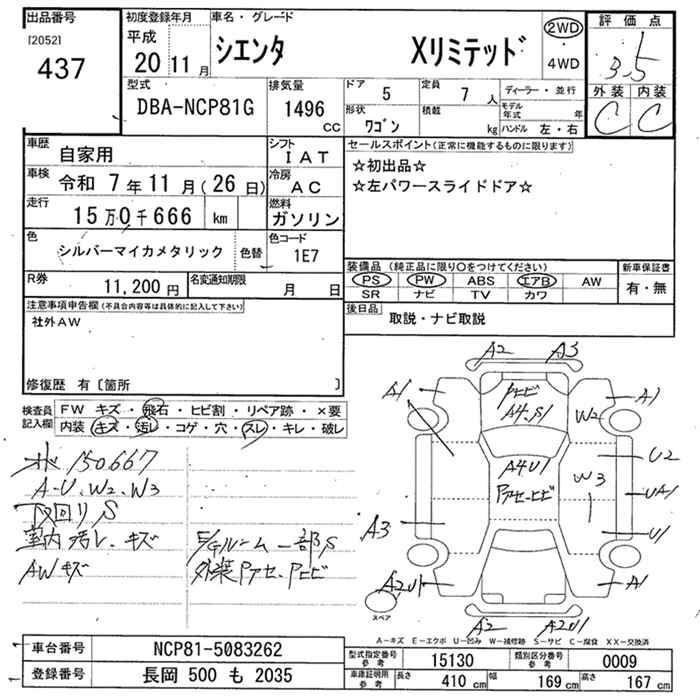 出品番号
[2052]
437
初度登録年月
平成
20 11 月
車名・グレード
シエンタ Xリミテッド
2WD
・
4WD
評価点
3.5
外装 内装
C C
型式
DBA-NCP81G
排気量
1496
CC
ドア
5
定員
7 人
形状
ワゴン
積載
kg
ディーラー・並行
モデル年式 年
ハンドル 左・右
車歴
自家用
シフト
IAT
車検
令和 7年11月(26日)
冷房
AC
走行
15万0千666 km
燃料
ガソリン
色
シルバーマイカメタリック
色替
色コード
1E7
R券
11,200 円
名変通知期限
月 日
セールスポイント(正常に機能するものに限ります)
☆初出品☆
☆左パワースライドドア☆
装備品 (純正品に限り○をつけてください)
新車保証書
PS PW ABS エアB AW
有・無
SR ナビ TV カワ
後日品
取説・ナビ取説
注意事項申告欄(不具合内容等は具体的に記入して下さい)
社外AW
修復歴 有〔箇所 〕
検査員記入欄
FW キズ・飛石・ヒビ割・リペア跡・×要
内装 キズ・汚レ・コゲ・穴・スレ・キレ・破レ
150667
A-U、W2、W3
下回りS
室内汚レ、キズ
AWキズ
E/Gルーム一部S
外装Pアセ、Pヒビ
A2 A3
A1
Pヒビ
A4、S1
A1
W2
A4U1
Pアセ・ヒビ
W3
U2
UA1
U1
A3
A2U1
A1
A2 A2U1
スペア
A－キズ E－エクボ U－凹み W－補修跡 S－サビ C－腐食 XX－交換済
車台番号
NCP81-5083262
登録番号
長岡 500 も 2035
型式指定番号
参考
15130
類別区分番号
参考
0009
車庫証明用
参考
長さ
410 cm
幅
169 cm
高さ
167 cm